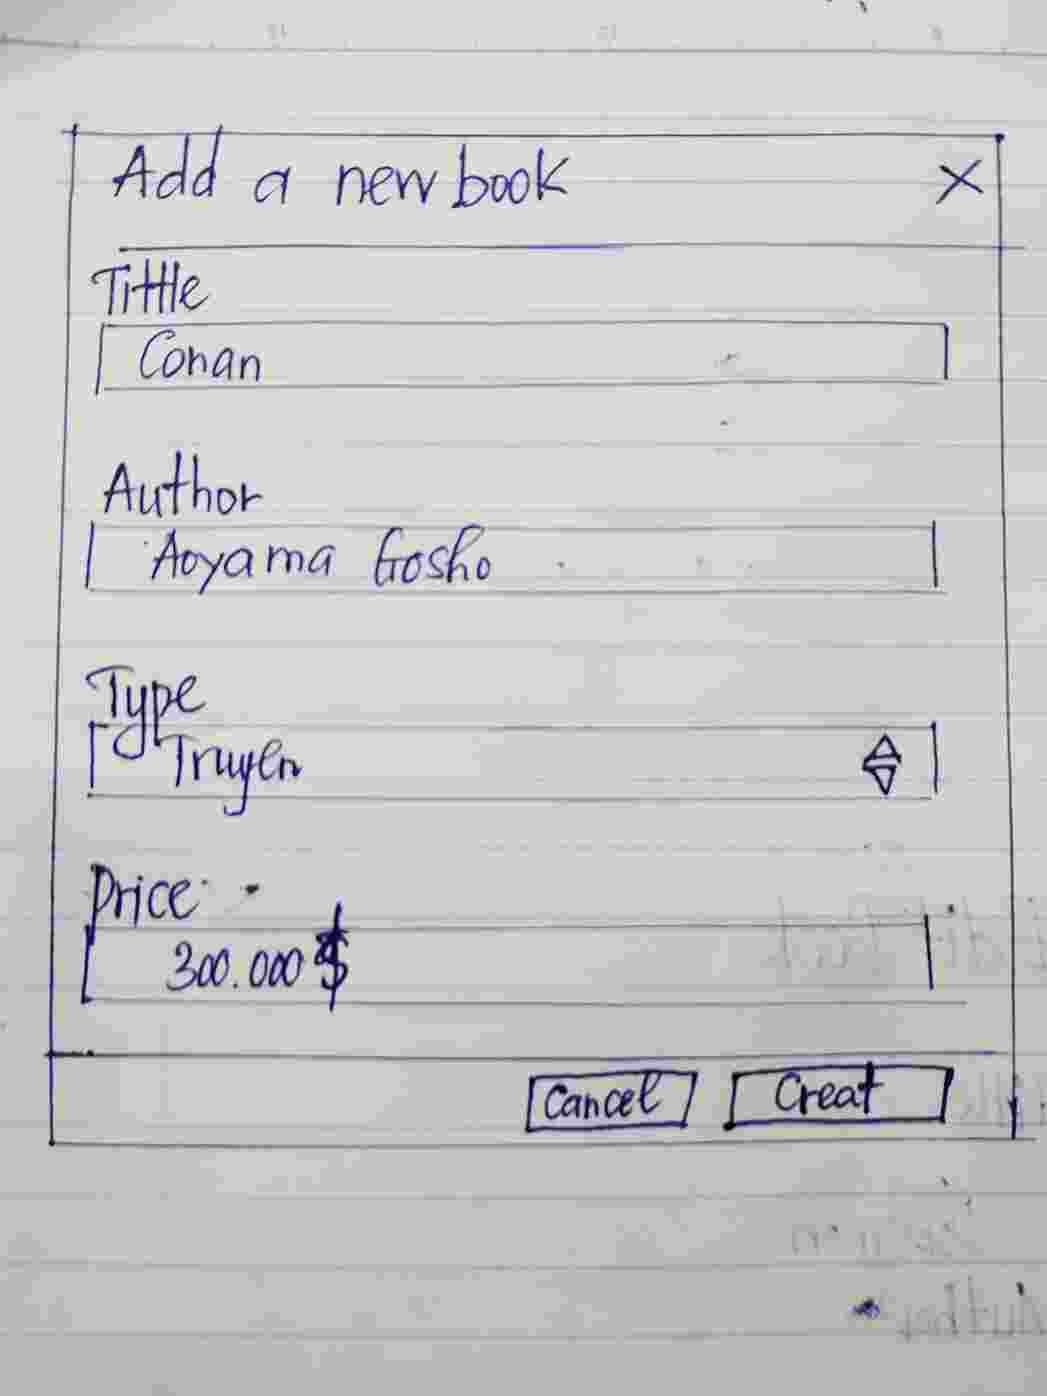 Add a new book X
Tittle
Conan
Author
Aoyama Gosho
Type
Truyen
Price
300.000 $
Cancel Creat